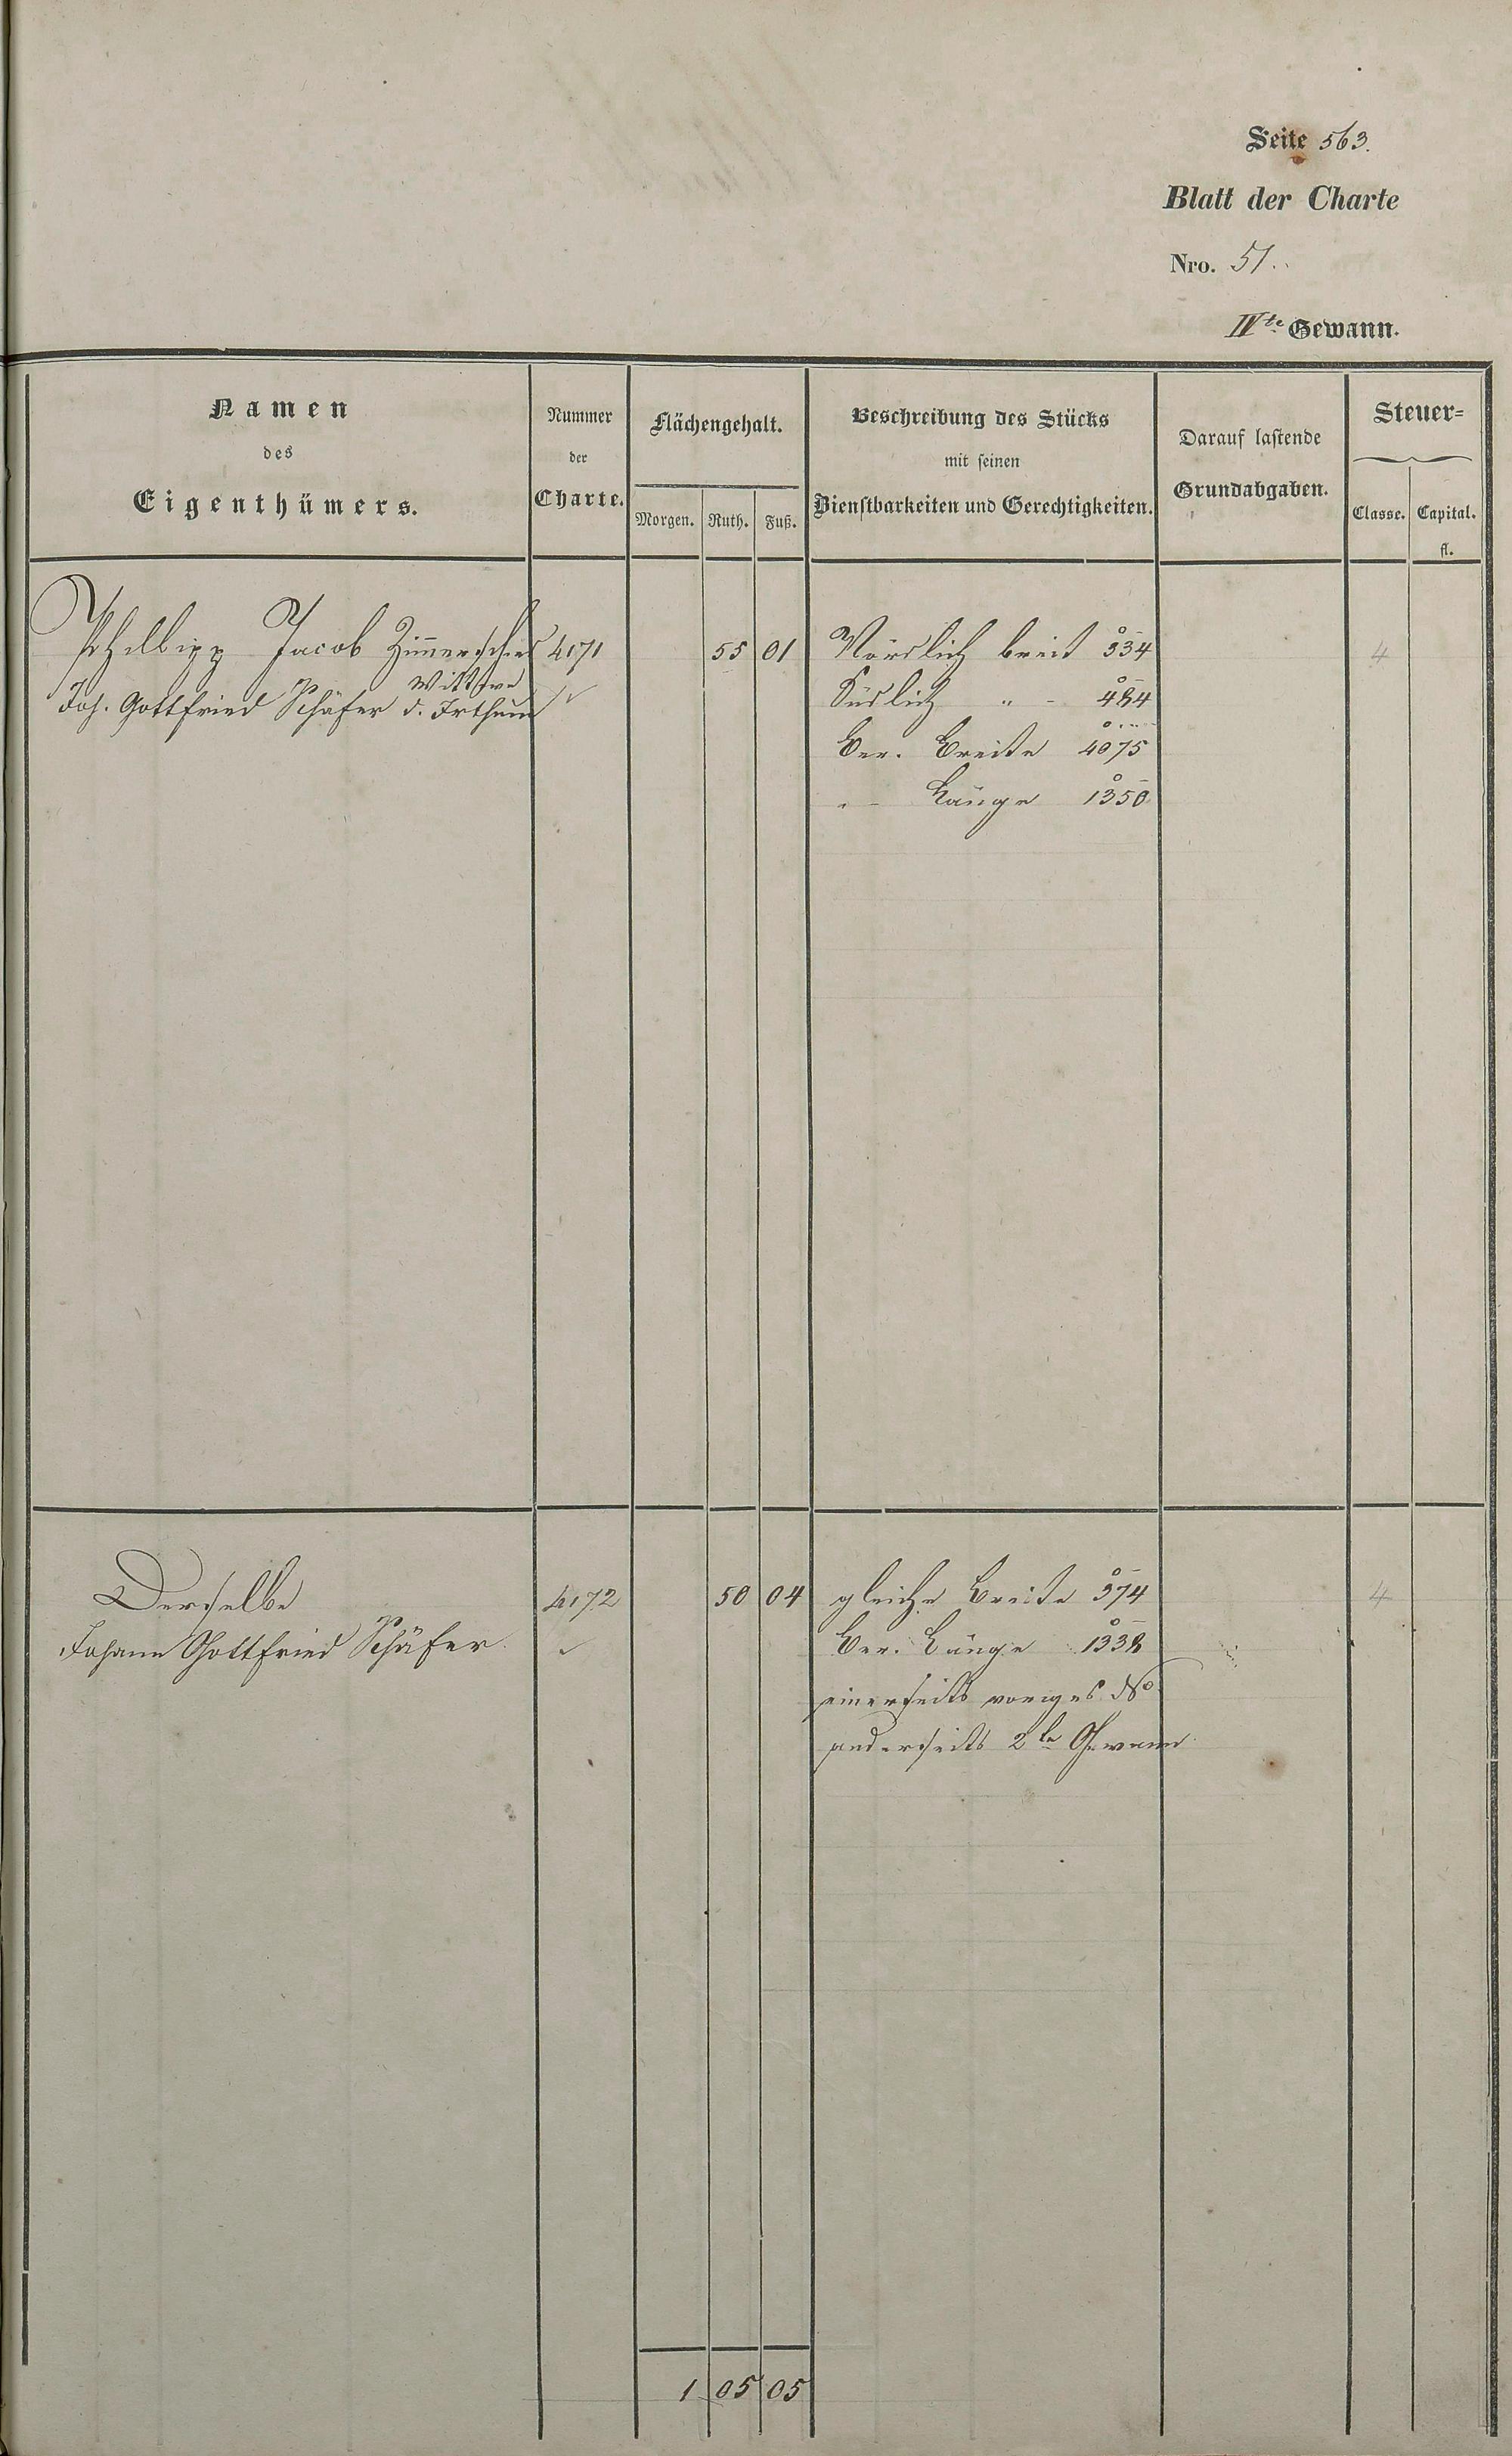 Seite 563.
Blatt der Charte
Nro. 51.
IVte Gewann.
Namen
des
Eigenthümers.
Nummer
der
Charte.
Flächengehalt.
Morgen. Ruth. Fuß.
Beschreibung des Stücks
mit seinen
Dienstbarkeiten und Gerechtigkeiten.
Darauf lastende
Grundabgaben.
Steuer=
Classe. Capital.
fl.
Philipp Jacob Zim̅erschied 4171 55 01 Nördlich breit 334 4
Wittwe
Joh. Gottfried Schäfer d. Südlich " - 484
Ber. Breite 4075
" - Länge 1350
Derselbe 4172 50 04 gleiche Breite 374 4
Johann Gottfried Schäfer Ber. Länge 1338
einerseits voriges No
anderseits 2te Gewann
1 05 05